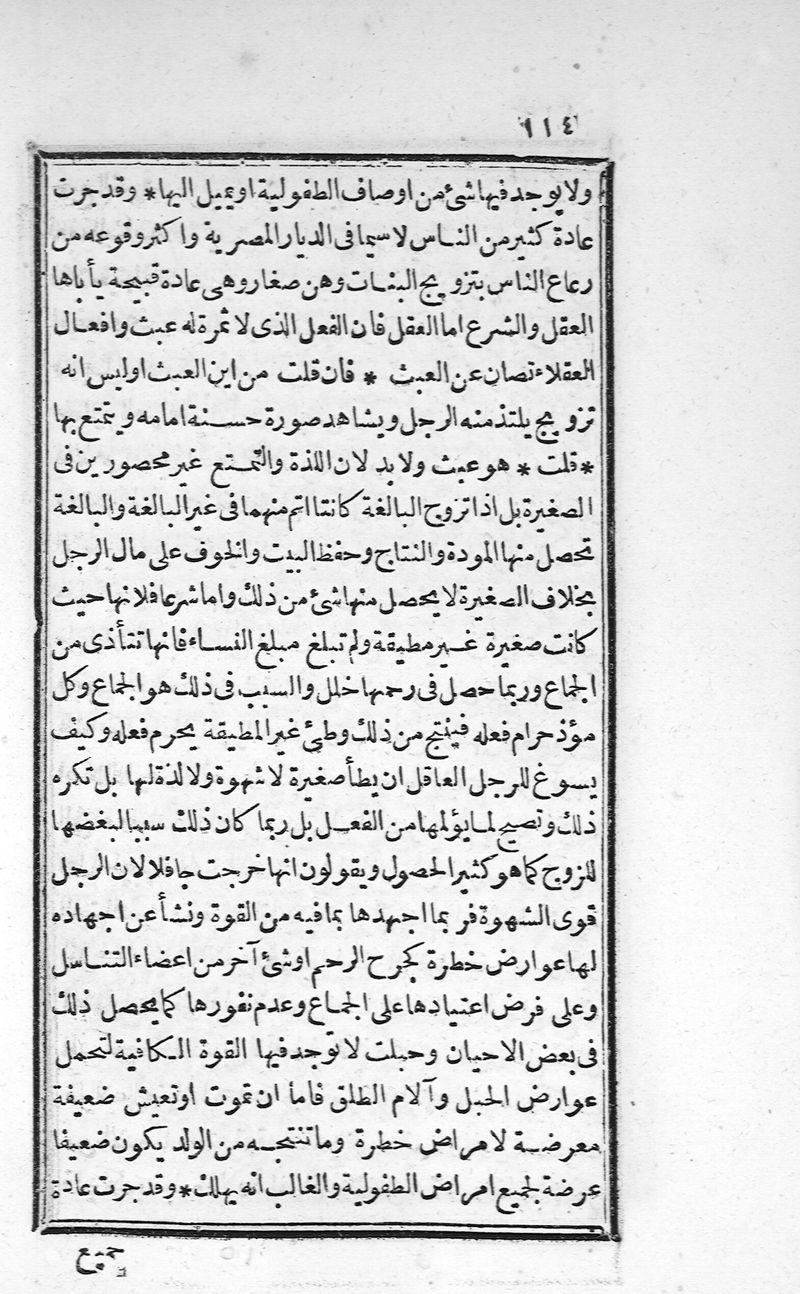 ١١٤
ولا يوجد فيها شئ من اوصاف الطفولية او يميل اليها * وقد جرت
عادة كثير من الناس لا سيما فى الديار المصرية واكثر وقوعه من
رعاع الناس بتزويج البنات وهن صغار وهى عادة قبيحة يأباها
العقل والشرع اما العقل فان الفعل الذى لا ثمرة له عبث وافعال
العقلاء تصان عن العبث * فان قلت من اين العبث اوليس انه
تزويج يلتذ منه الرجل ويشاهد صورة حسنة امامه ويتمتع بها
* قلت * هو عبث ولا بد لان اللذة والتمتع غير محصورين فى
الصغيرة بل اذا تزوج البالغة كانتا اتم منهما فى غير البالغة والبالغة
تحصل منها المودة والنتاج وحفظ البيت والخوف على مال الرجل
بخلاف الصغيرة لا يحصل منها شئ من ذلك واما شرعا فلانها حيث
كانت صغيرة غير مطيقة ولم تبلغ مبلغ النساء فانها تتأذى من
الجماع وربما حصل فى رحمها خلل والسبب فى ذلك هو الجماع وكل
مؤذ حرام فعله فينتج من ذلك وطئ غير المطيقة يحرم فعله وكيف
يسوغ للرجل العاقل ان يطأ صغيرة لا شهوة ولا لذة لها بل تكره
ذلك وتصيح لما يؤلمها من الفعل بل ربما كان ذلك سببا لبغضها
للزوج كما هو كثير الحصول ويقولون انها خرجت جافلا لان الرجل
قوى الشهوة فربما اجهدها بما فيه من القوة ونشأ عن اجهاده
لها عوارض خطرة كجرح الرحم او شئ آخر من اعضاء التناسل
وعلى فرض اعتيادها على الجماع وعدم نفورها كما يحصل ذلك
فى بعض الاحيان وحبلت لا توجد فيها القوة الكافية لتحمل
عوارض الحبل وآلام الطلق فاما ان تموت او تعيش ضعيفة
معرضة لامراض خطرة وما تنتجه من الولد يكون ضعيفا
عرضة لجميع امراض الطفولية والغالب انه يهلك * وقد جرت عادة
جميع